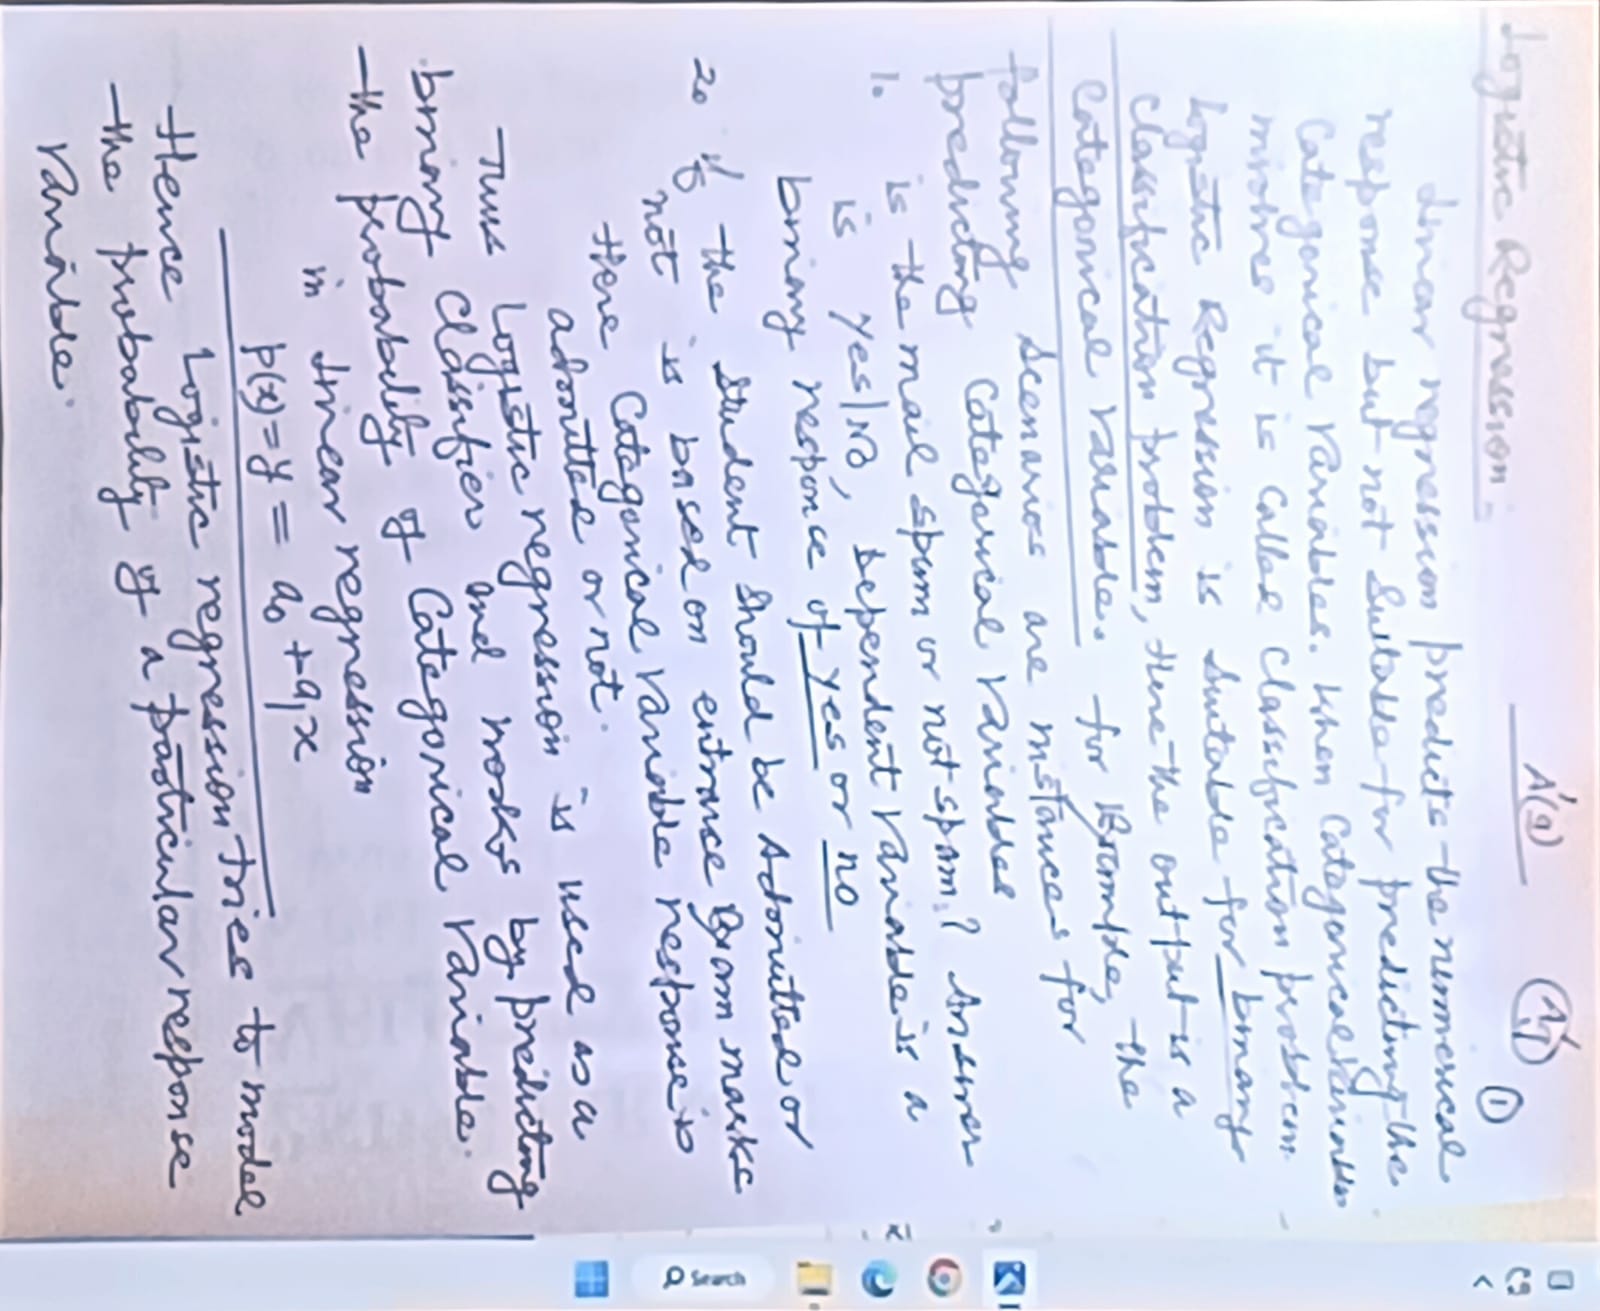 A'(9)
1
Logistic Regression.
Linear regression predicts the numerical
response but not Suitable for predicting the
Categorical Variables. When Categorical Variables
involves it is Called Classification problem
Logistic Regression is Suitable for binary
classification problem, Here the output is a
Categorical Variable. for Example, the
following Scenarios are instances for
predicting Categorical Variables
1. is the mail spam or not spam? Answer
is Yes/No, Dependent Variable is a
binary responce of yes or no
2. if the Student Should be Admitted or
not is based on entrance Exam marks
Here Categorical Variable response is
admitted or not.
Thus Logistic regression is used as a
binary Classifier and works by predicting
the probability of Categorical Variable.
in linear regression
p(x)=y = a₀ + a₁x
Hence Logistic regression tries to model
the probability of a particular response
Variable.
Search